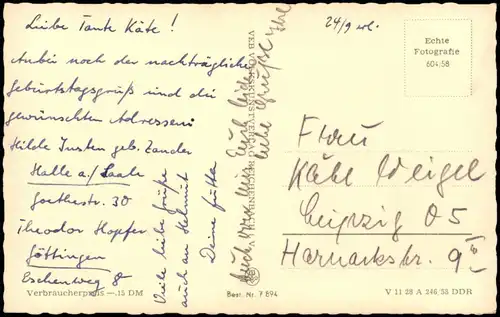 Liebe Tante Käte!
Anbei noch der nachträgliche
Geburtstagsgruß und die
gewünschten Adressen:
Hilde Justen geb. Zander
Halle a./Saale
Goethestr. 30
Theodor Hopfer
Göttingen
Eschenweg 8
Viele liebe Grüße
auch an Helmut
Deine Jutta
Auch von mir Euch
liebe Grüße
24/9
Echte
Fotografie
604/58
Frau
Käte Weigel
Leipzig O5
Harnackstr. 9
Verbraucherpreis —.15 DM
Best. Nr. 7 894
V 11 28 A 246/58 DDR